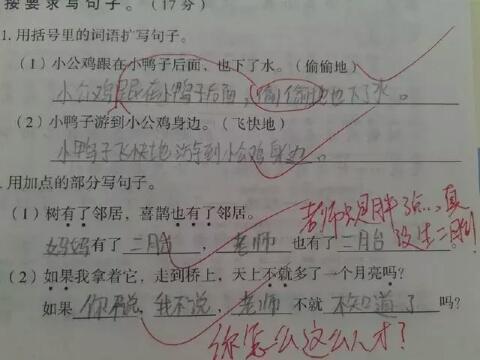 按要求写句子。（17分）
1. 用括号里的词语扩写句子。
（1）小公鸡跟在小鸭子后面，也下了水。（偷偷地）
小公鸡跟在小鸭子后面，偷偷地也下了水。
（2）小鸭子游到小公鸡身边。（飞快地）
小鸭子飞快地游到小公鸡身边。
用加点的部分写句子。
（1）树有了邻居，喜鹊也有了邻居。
老师只是胖了点…真没生二胎
妈妈有了二月台，老师也有了二月台。
（2）如果我拿着它，走到桥上，天上不就多了一个月亮吗？
如果你不说，我不说，老师不就不知道了吗？
你怎么这么人才？